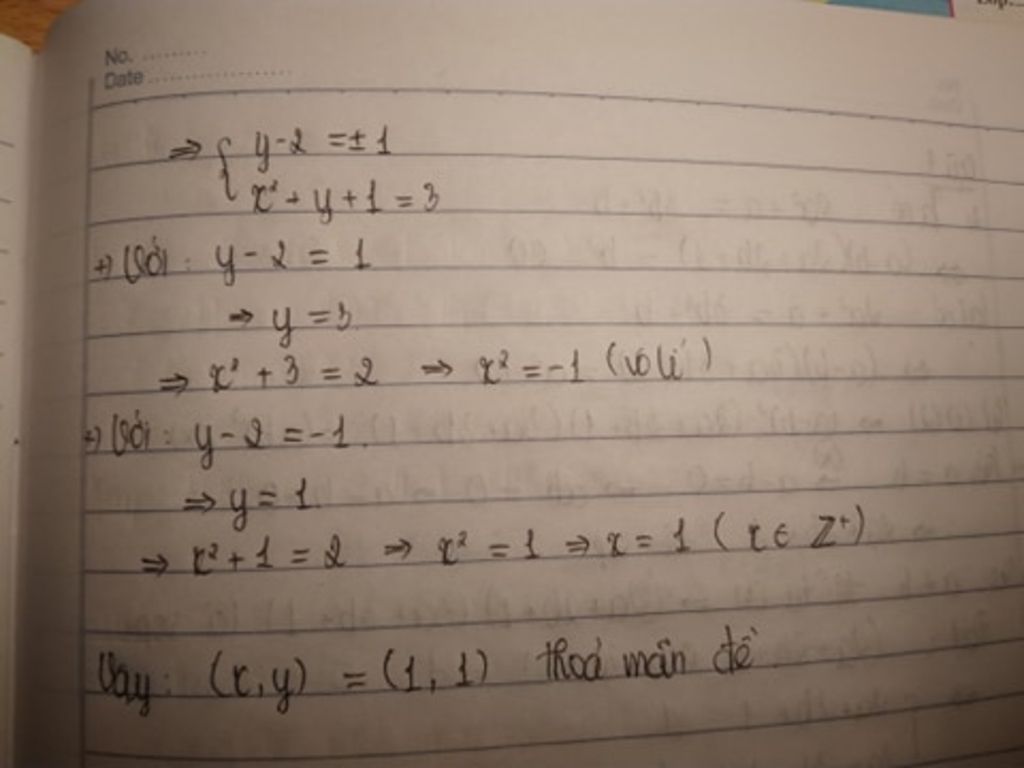 No. ..........
Date ..................
⇒ { y-2 = ±1
x² + y + 1 = 3
+) Với: y - 2 = 1
⇒ y = 3
⇒ x² + 3 = 2 ⇒ x² = -1 (vô lí)
+) Với: y - 2 = -1.
⇒ y = 1.
⇒ x² + 1 = 2 ⇒ x² = 1 ⇒ x = 1 (x ∈ Z⁺)
Vậy: (x, y) = (1, 1) thoả mãn đề